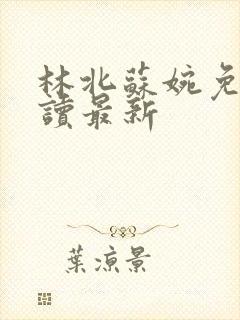 林北蘇婉免
讀最新
葉涼景